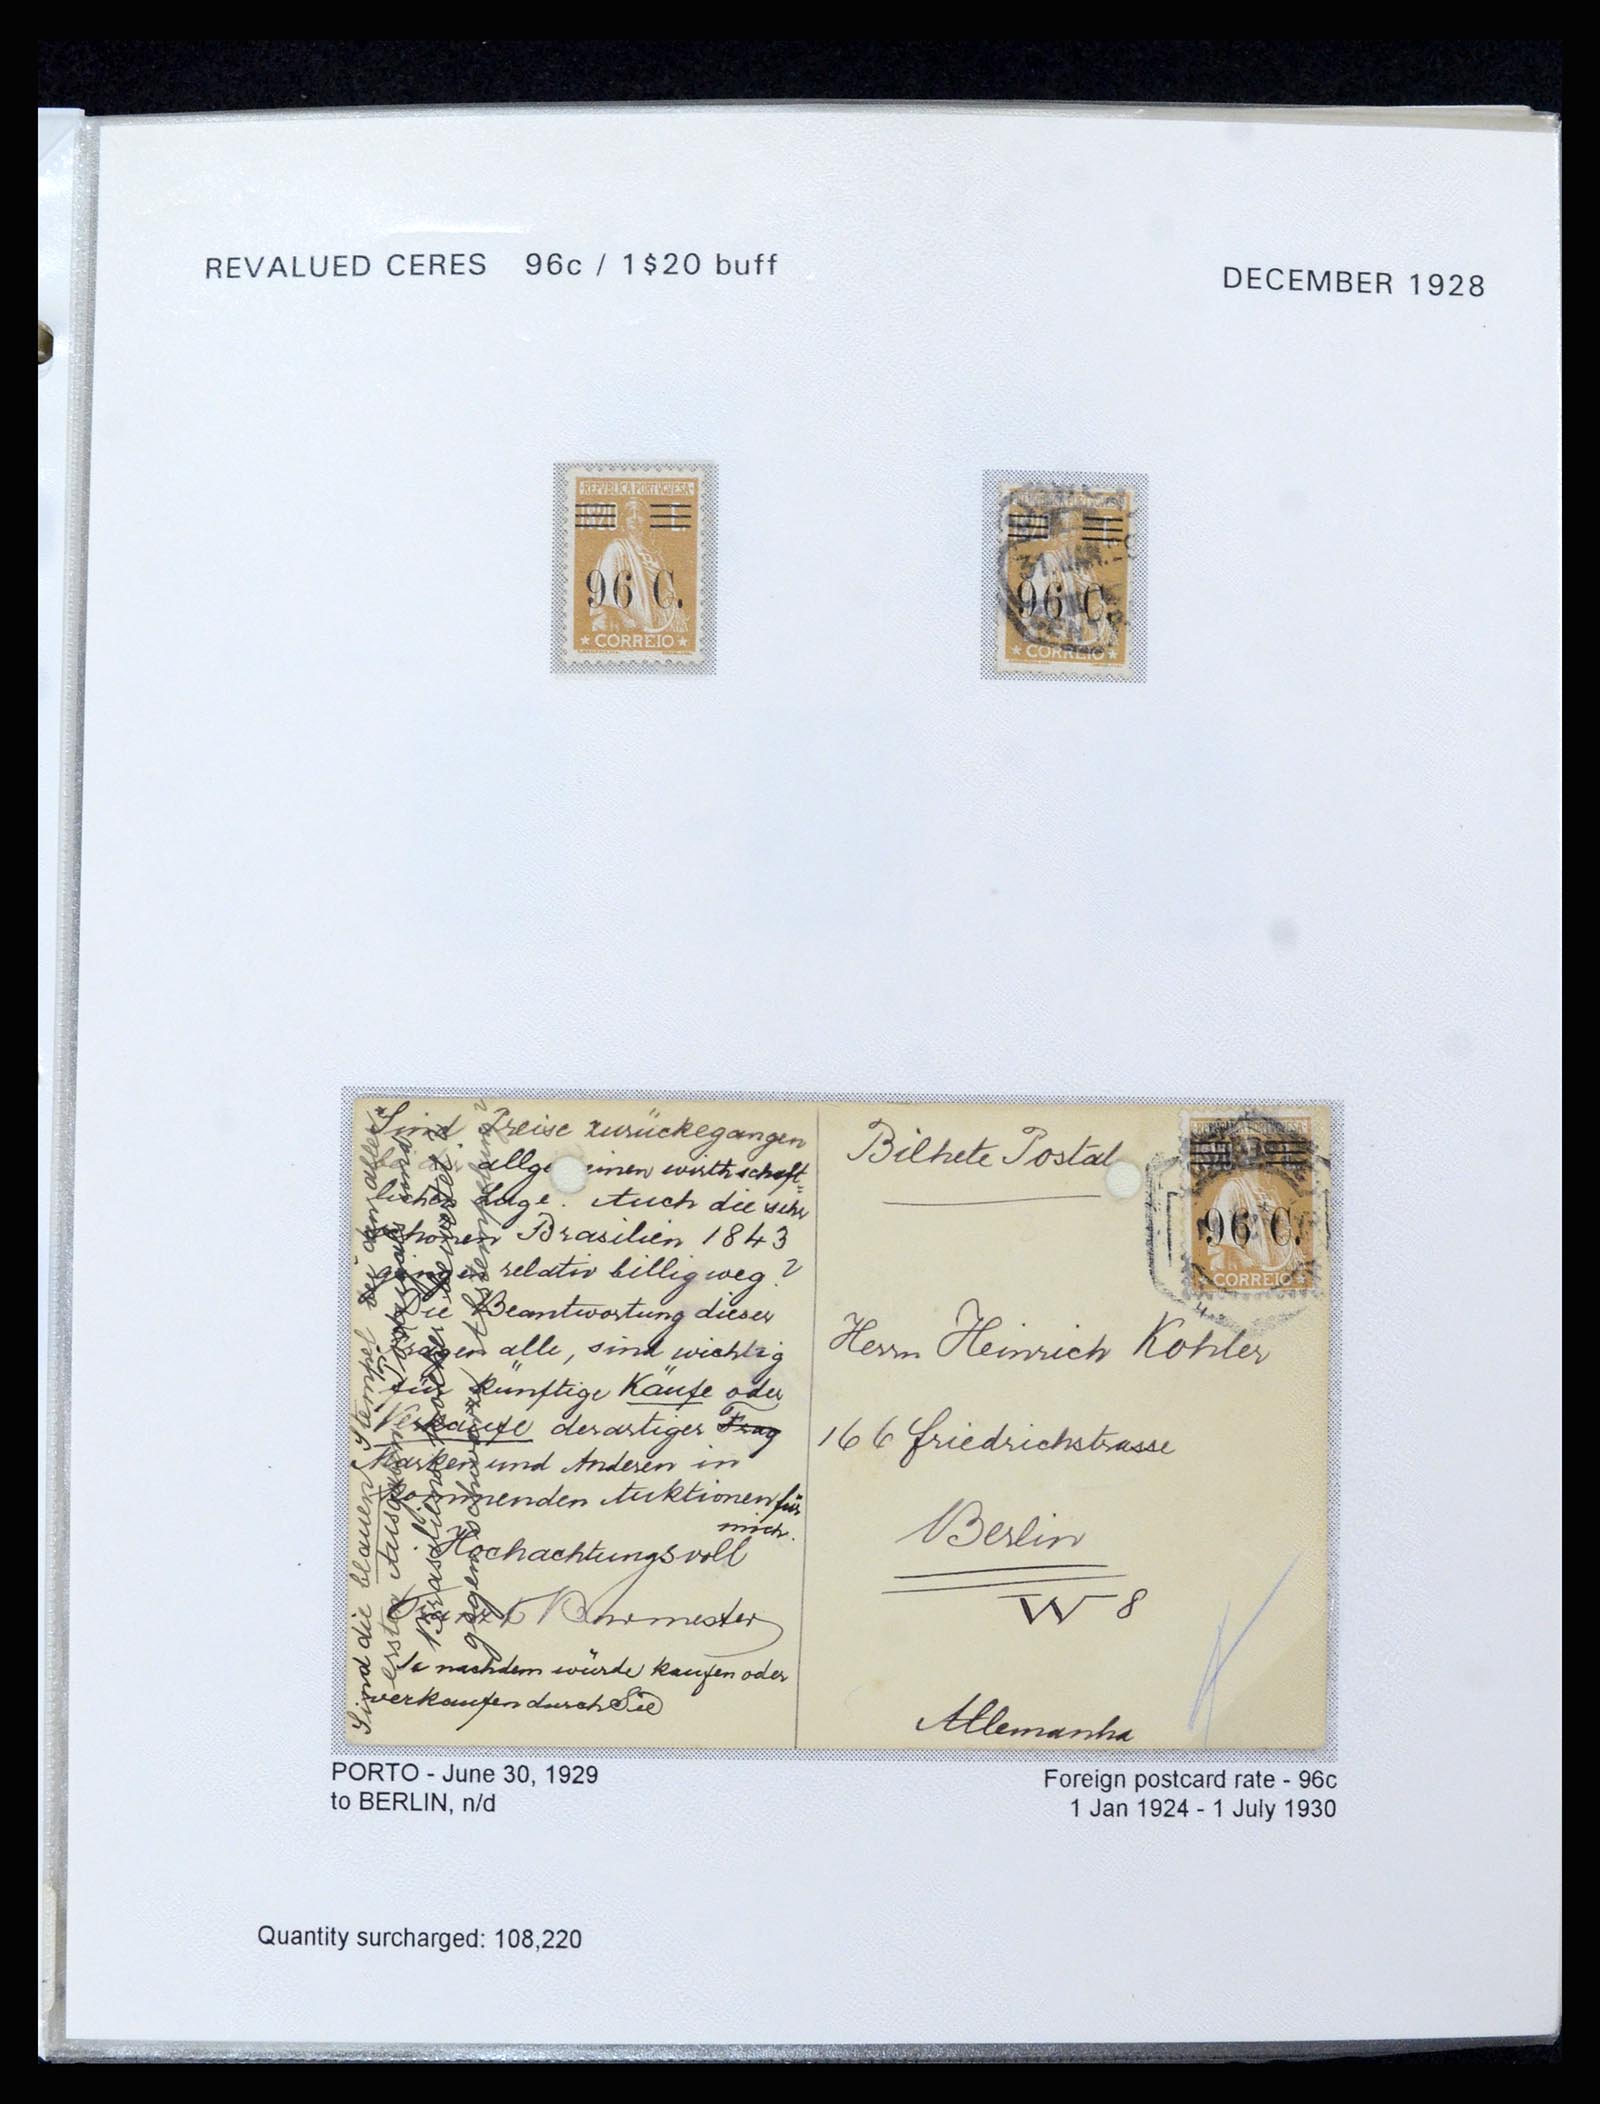 REVALUED CERES 96c / 1$20 buff
DECEMBER 1928
REPVBLICA PORTVGVESA
96 C.
CORREIO
31. MAR.
96 C.
CORREIO
Sind Preise zurückegangen
allge einen wirthschaft-
lichen Lage. Auch die sehr
schönen Brasilien 1843
gingen relativ billig weg?
Die Beantwortung dieser
Fragen alle, sind wichtig
für künftige Käufe oder
Verkäufe derartiger Frag
Marken und Anderen in
kommenden Auktionen für
mich.
Hochachtungsvoll
Burmester
Je nachdem würde kaufen oder
verkaufen durch Sie
Sind die blauen Stempel bei den alten
Bilhete Postal
96 C.
CORREIO
Herrn Heinrich Kohler
166 Friedrichstrasse
Berlin
W 8
Allemanha
PORTO - June 30, 1929
to BERLIN, n/d
Foreign postcard rate - 96c
1 Jan 1924 - 1 July 1930
Quantity surcharged: 108,220